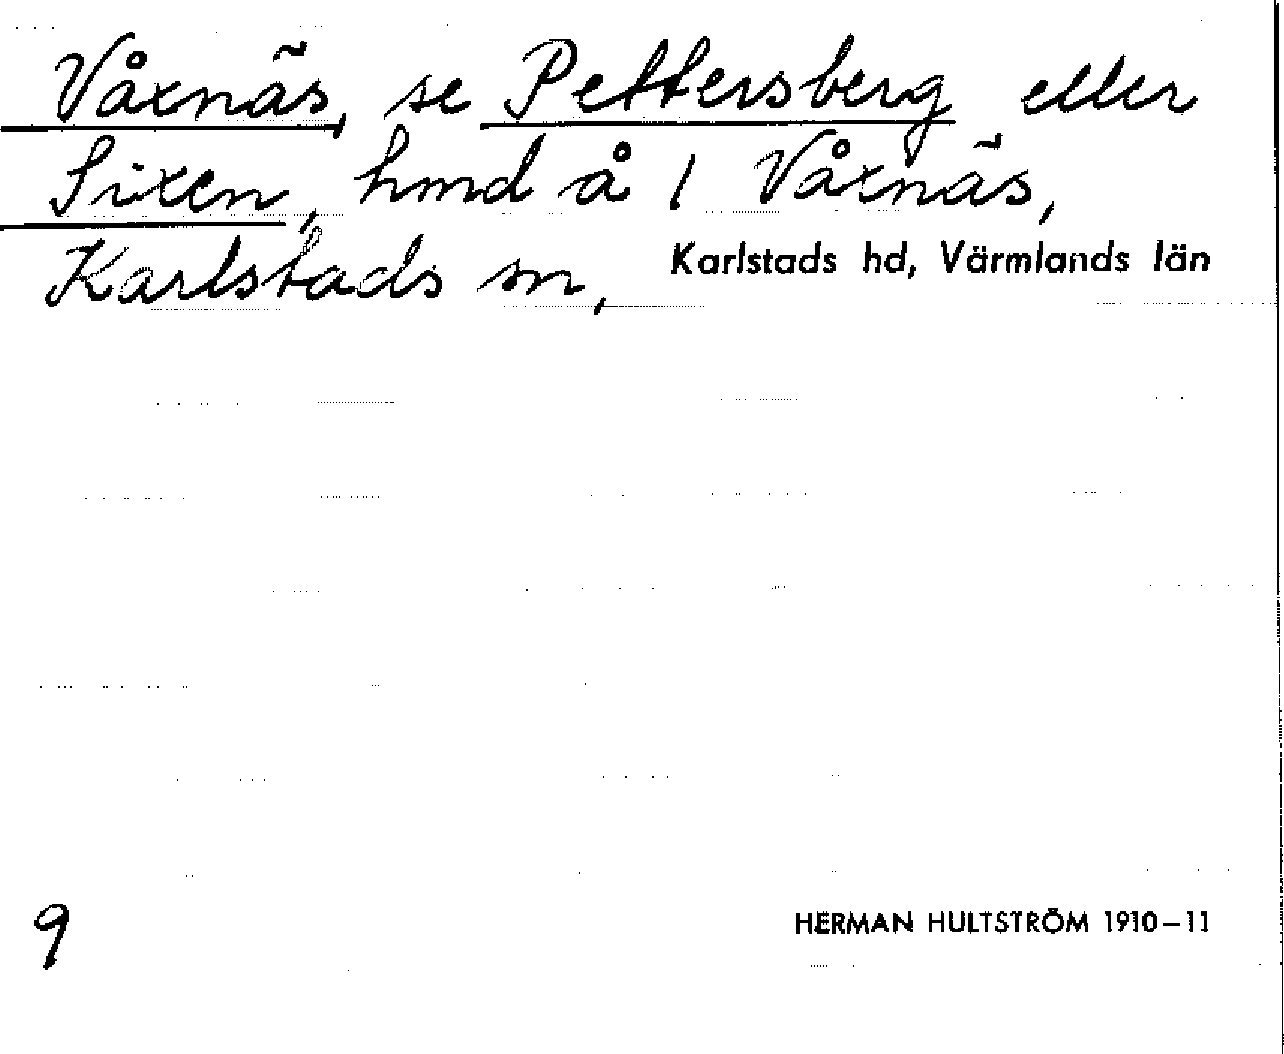 Våxnäs, se Pettersberg eller
Sixen, hmd å 1 Våxnäs,
Karlstads sn, Karlstads hd, Värmlands län
9
HERMAN HULTSTRÖM 1910–11